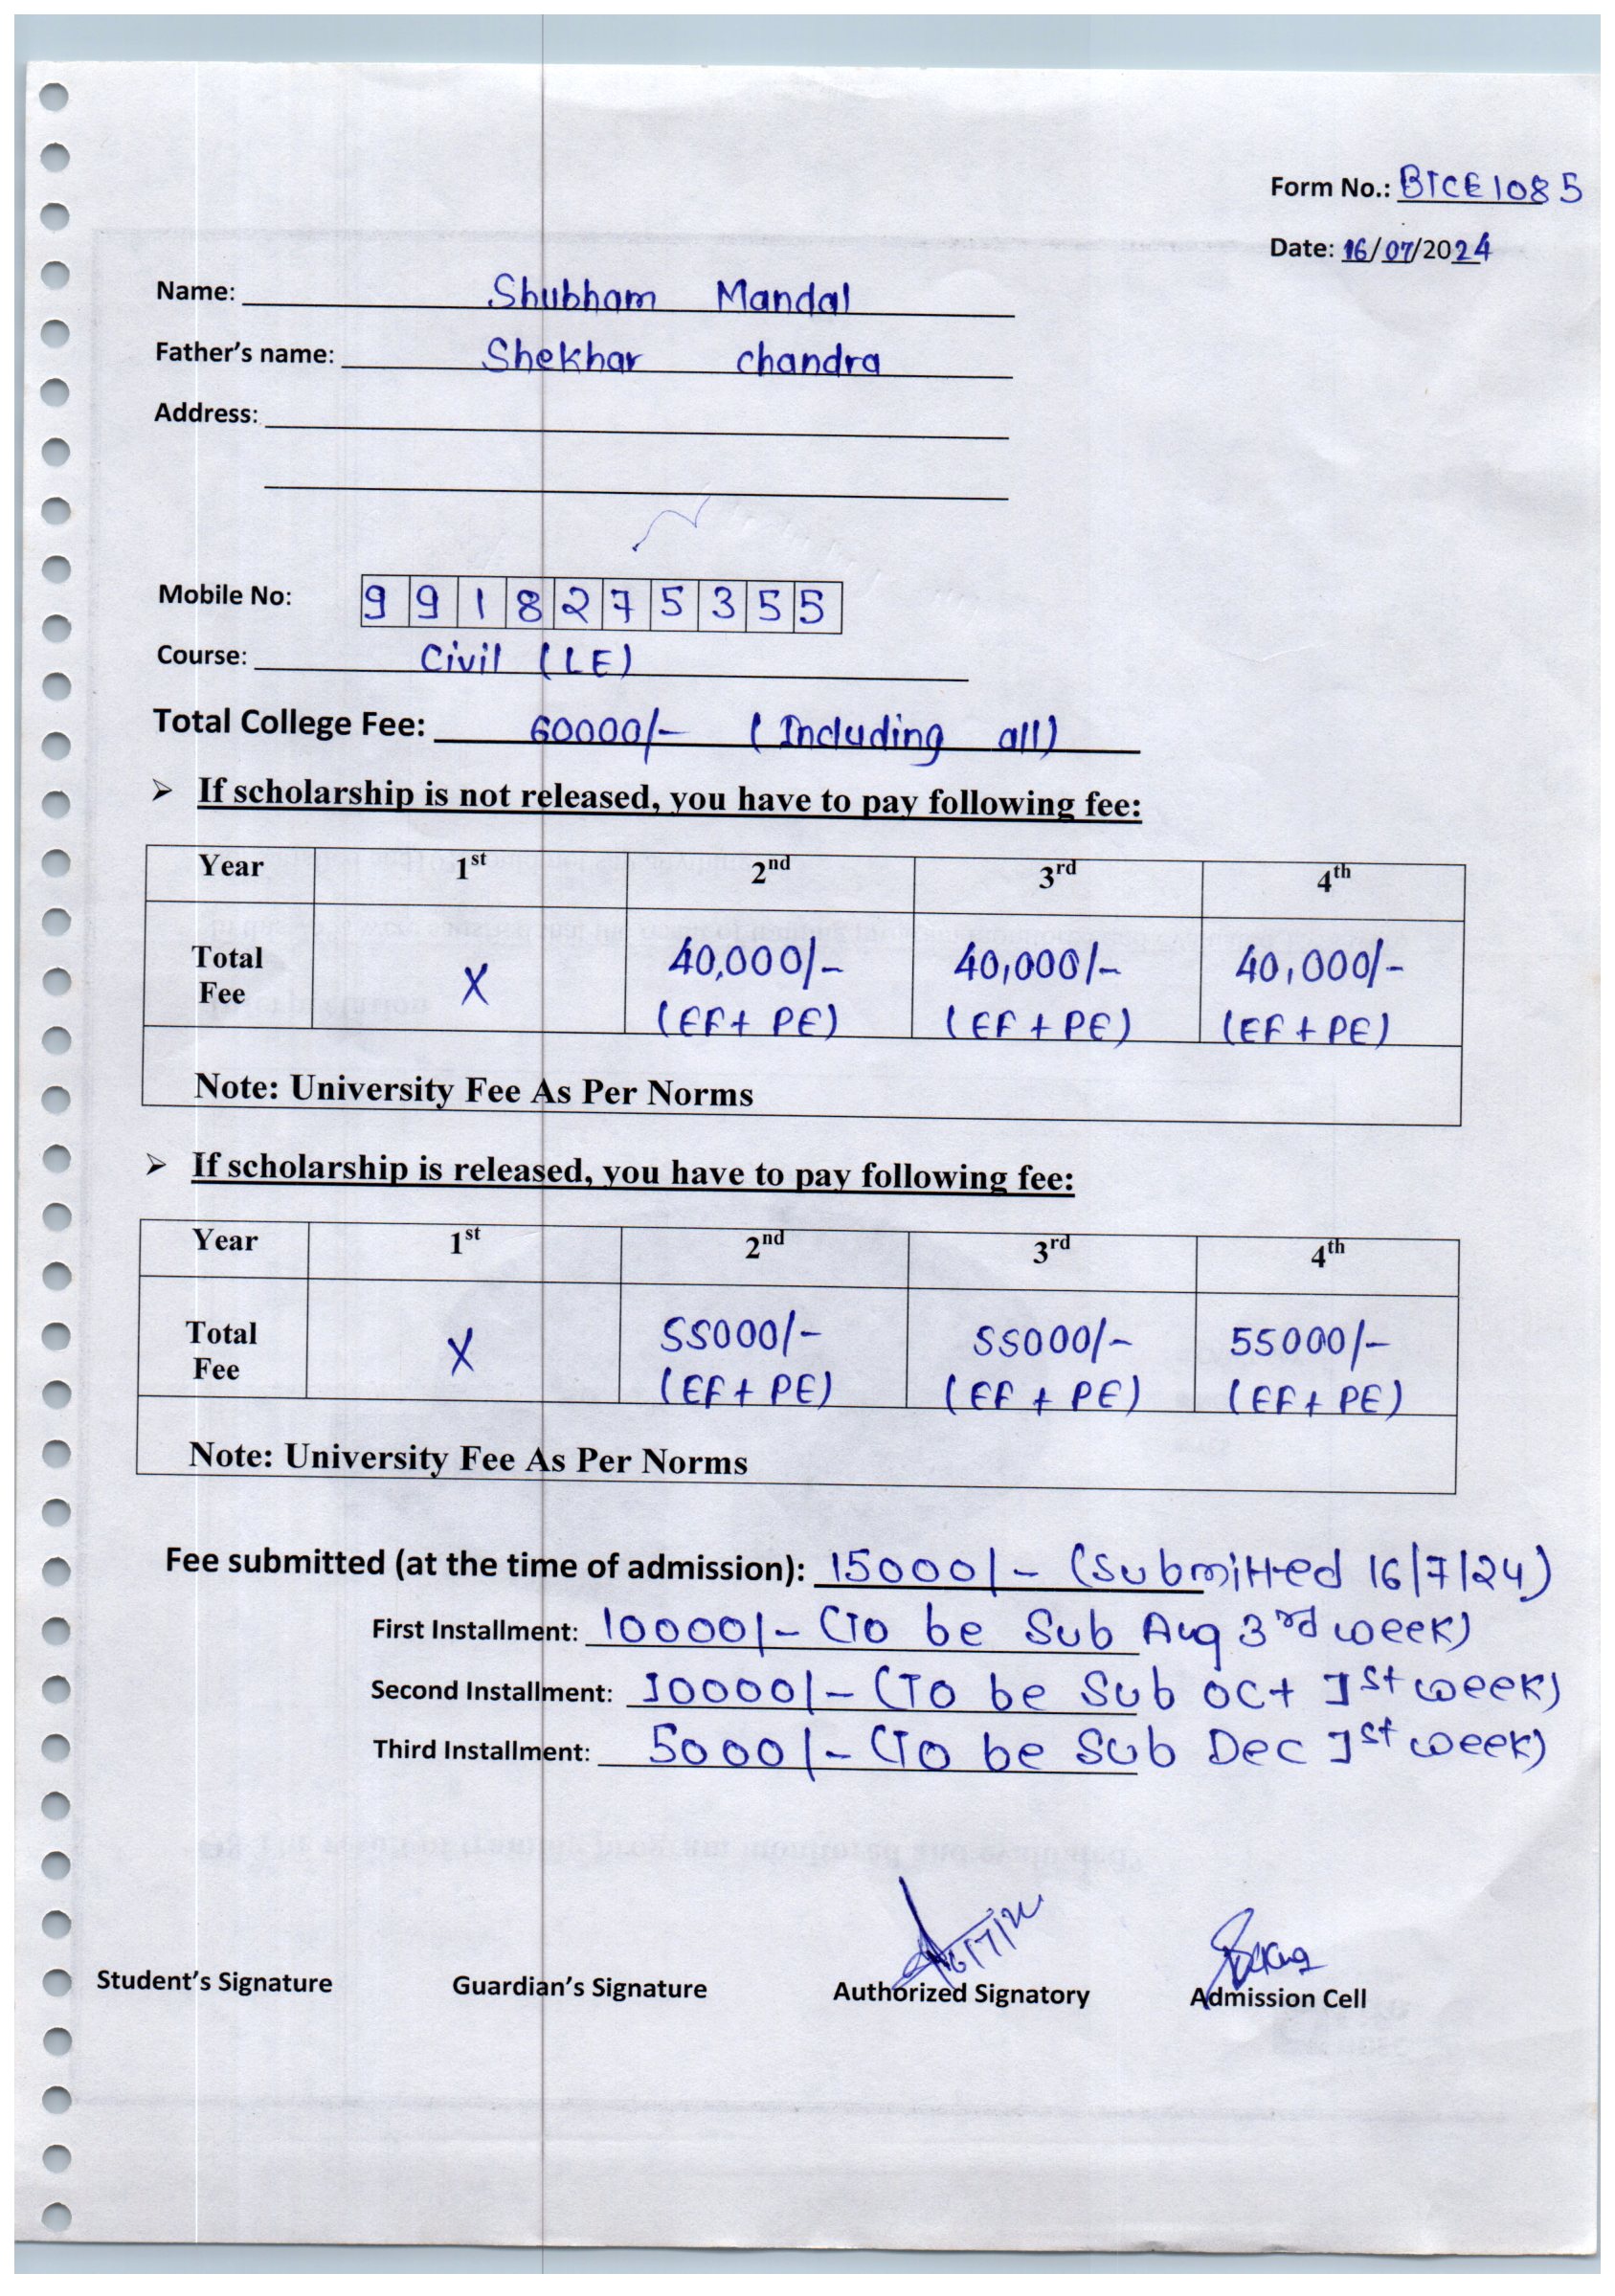 Form No.: BTCE1085
Date: 16/07/2024
Name: Shubham Mandal
Father's name: Shekhar chandra
Address:
Mobile No: 9918275355
Course: Civil (LE)
Total College Fee: 60000/- (Including all)
➤ If scholarship is not released, you have to pay following fee:
Year 1st 2nd 3rd 4th
Total Fee X 40,000/- 40,000/- 40,000/-
(EF+ PE) (EF + PE) (EF + PE)
Note: University Fee As Per Norms
➤ If scholarship is released, you have to pay following fee:
Year 1st 2nd 3rd 4th
Total Fee X 55000/- 55000/- 55000/-
(EF+ PE) (EF + PE) (EF + PE)
Note: University Fee As Per Norms
Fee submitted (at the time of admission): 15000/- (Submitted 16/7/24)
First Installment: 10000/- (To be Sub Aug 3rd week)
Second Installment: 10000/- (To be Sub Oct 1st week)
Third Installment: 5000/- (To be Sub Dec 1st week)
Student's Signature Guardian's Signature Authorized Signatory Admission Cell